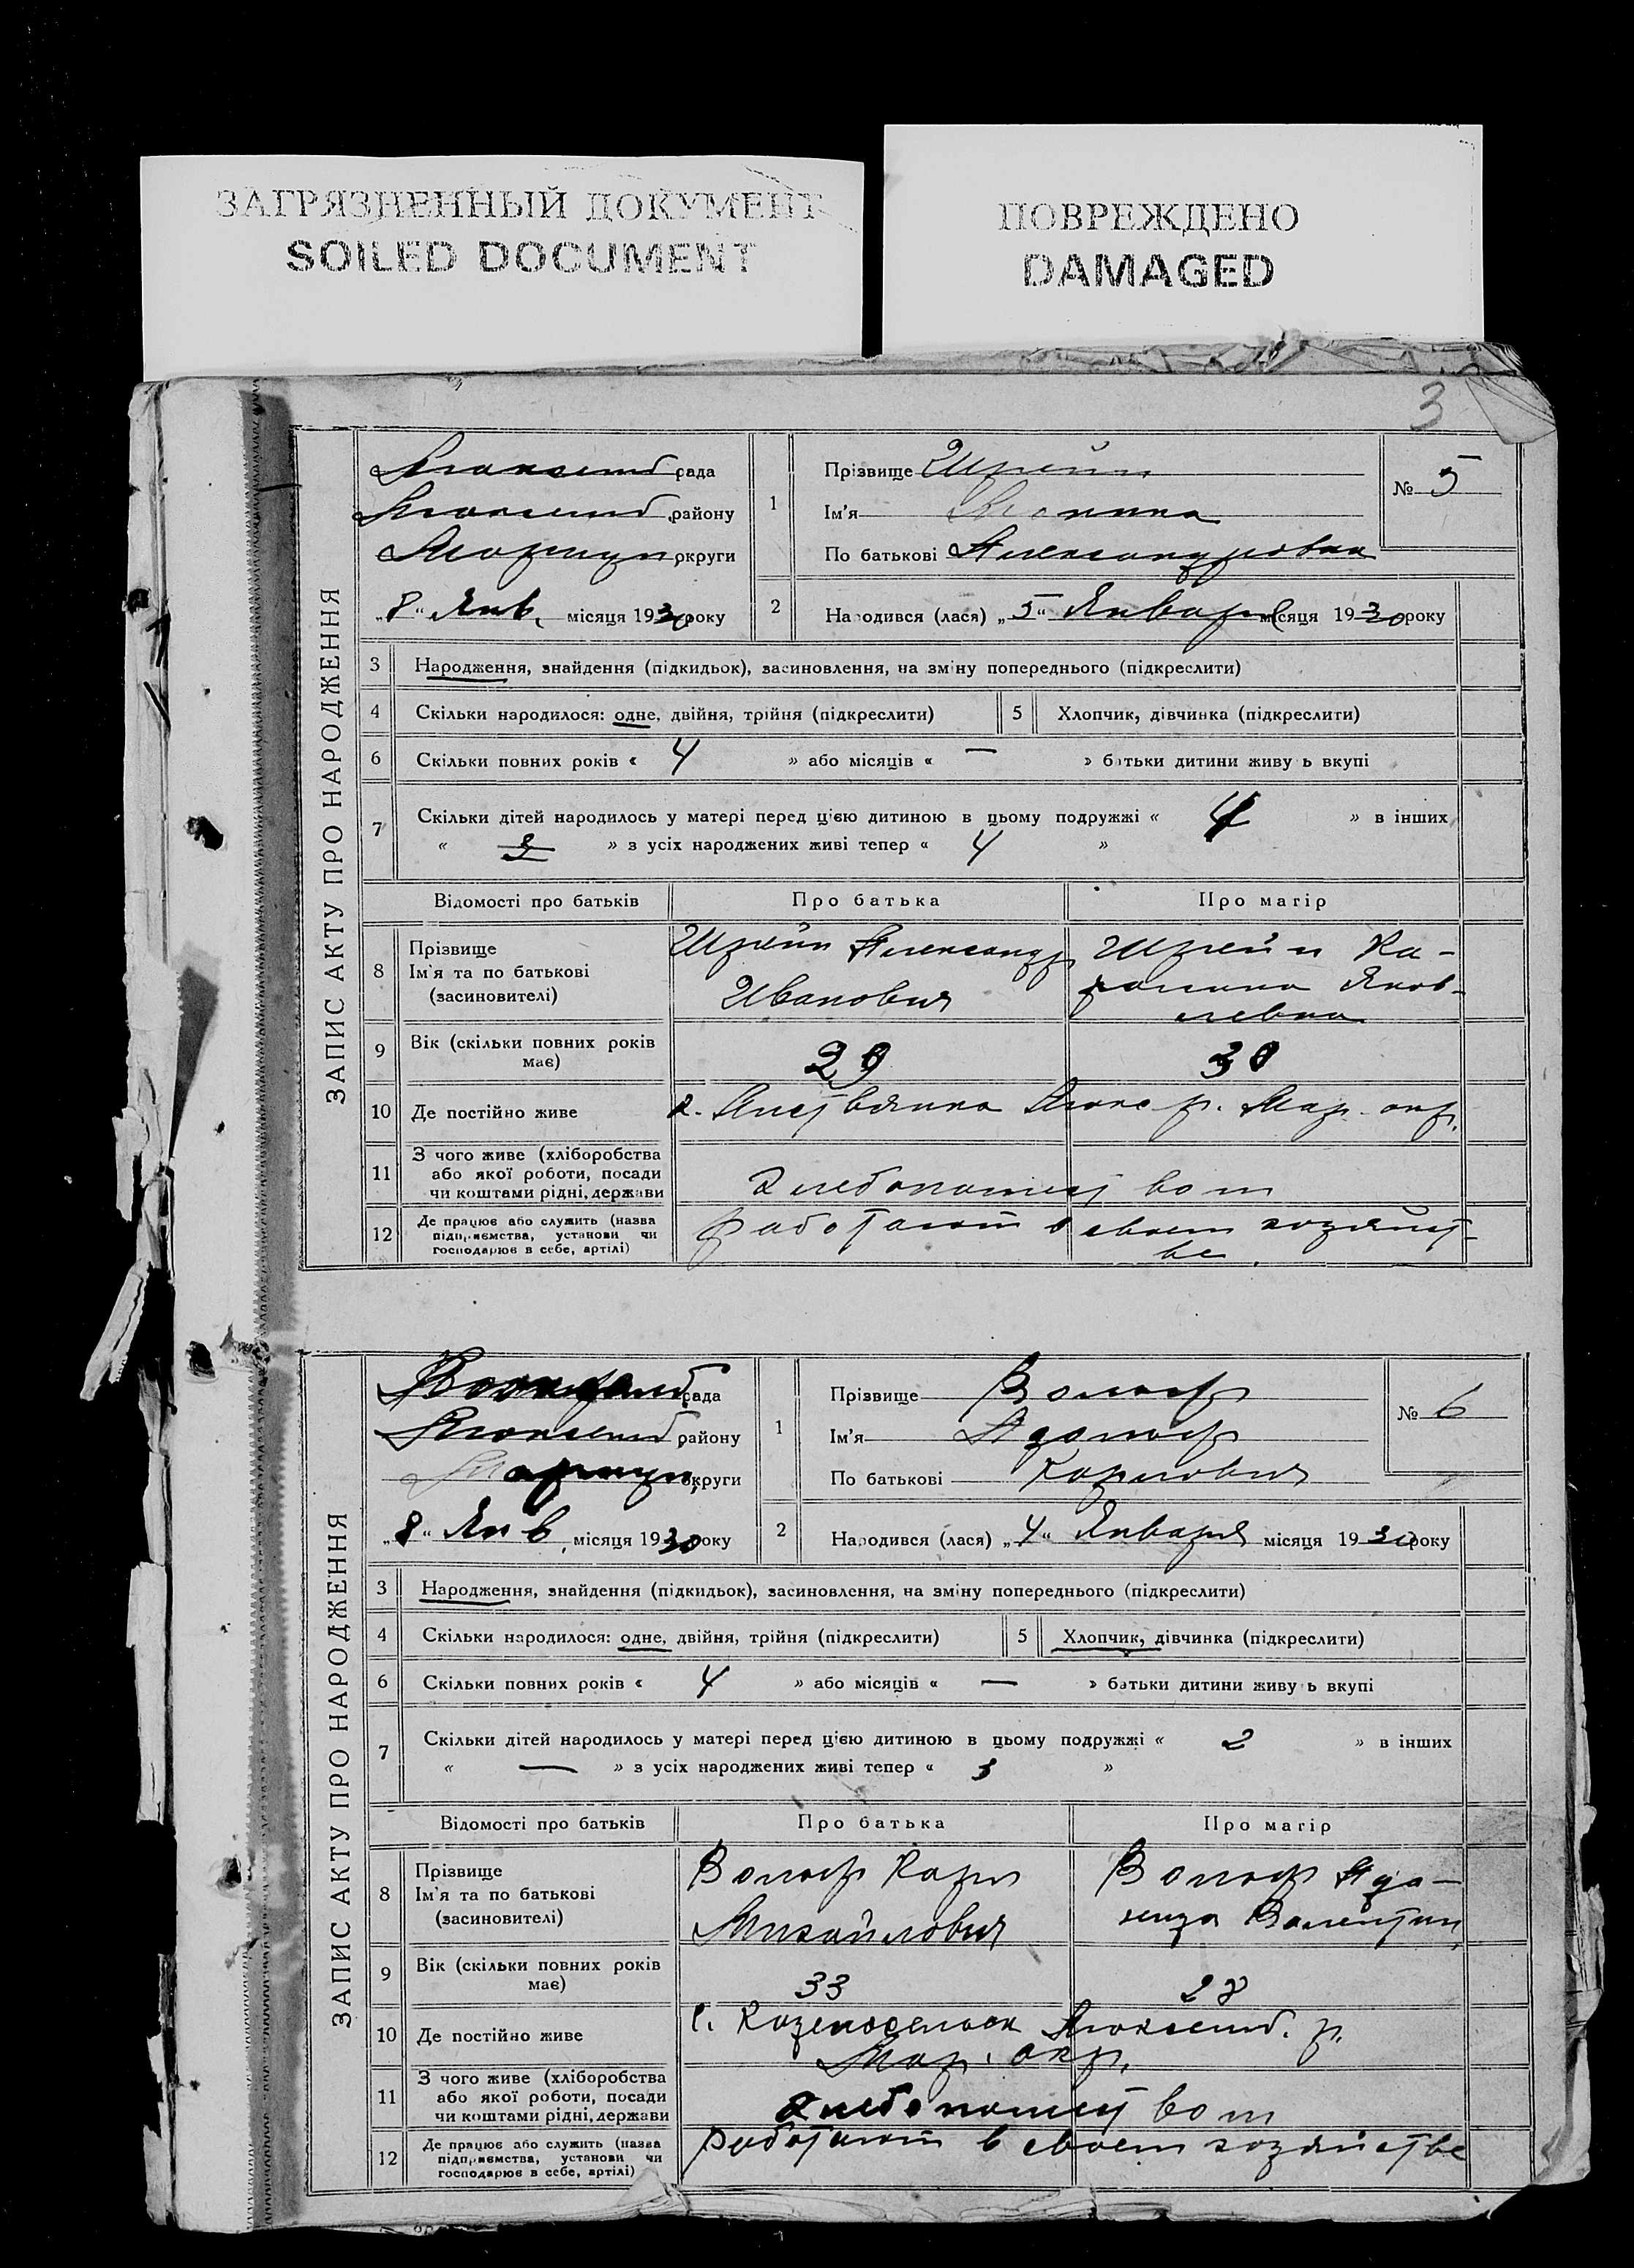 ЗАГРЯЗНЕННЫЙ ДОКУМЕНТ
SOILED DOCUMENT
ПОВРЕЖДЕНО
DAMAGED
3
ЗАПИС АКТУ ПРО НАРОДЖЕННЯ
Люксемб. рада
Люксемб. району
Мариуп. округи
„8“ Янв. місяця 1930 року
1
Прізвище Шрейн
Ім'я
По батькові Александровна
№ 5
2 Народився (лася) „5“ Января місяця 1930 року
3 Народження, знайдення (підкидьок), засиновлення, на зміну попереднього (підкреслити)
4 Скільки народилося: одне, двійня, трійня (підкреслити) 5 Хлопчик, дівчинка (підкреслити)
6 Скільки повних років « 4 » або місяців « — » батьки дитини живуть вкупі
7 Скільки дітей народилось у матері перед цією дитиною в цьому подружжі « 4 » в інших
« » з усіх народжених живі тепер « 4 »
Відомості про батьків Про батька Про матір
8 Прізвище Ім'я та по батькові (засиновителі)
Шрейн Александр Иванович
Шрейн Каролина Яковлевна
9 Вік (скільки повних років має) 29 30
10 Де постійно живе Люкс р. Мар. окр.
11 З чого живе (хліборобства або якої роботи, посади чи коштами рідні, держави
Хлебопашеством
12 Де працює або служить (назва підприємства, установи чи господарює в себе, артілі)
работают в своем хозяйстве
ЗАПИС АКТУ ПРО НАРОДЖЕННЯ
рада
Люксемб. району
Мариуп. округи
„8“ Янв. місяця 1930 року
1
Прізвище Вольф
Ім'я Адольф
По батькові Карлович
№ 6
2 Народився (лася) „4“ Января місяця 1930 року
3 Народження, знайдення (підкидьок), засиновлення, на зміну попереднього (підкреслити)
4 Скільки народилося: одне, двійня, трійня (підкреслити) 5 Хлопчик, дівчинка (підкреслити)
6 Скільки повних років « 4 » або місяців « — » батьки дитини живуть вкупі
7 Скільки дітей народилось у матері перед цією дитиною в цьому подружжі « 2 » в інших
« — » з усіх народжених живі тепер « 3 »
Відомості про батьків Про батька Про матір
8 Прізвище Ім'я та по батькові (засиновителі)
Вольф Карл Михайлович
Вольф Валентин.
9 Вік (скільки повних років має) 33 28
10 Де постійно живе с. Люксемб. р.
Мар. окр.
11 З чого живе (хліборобства або якої роботи, посади чи коштами рідні, держави
Хлебопашеством
12 Де працює або служить (назва підприємства, установи чи господарює в себе, артілі)
работают в своем хозяйстве